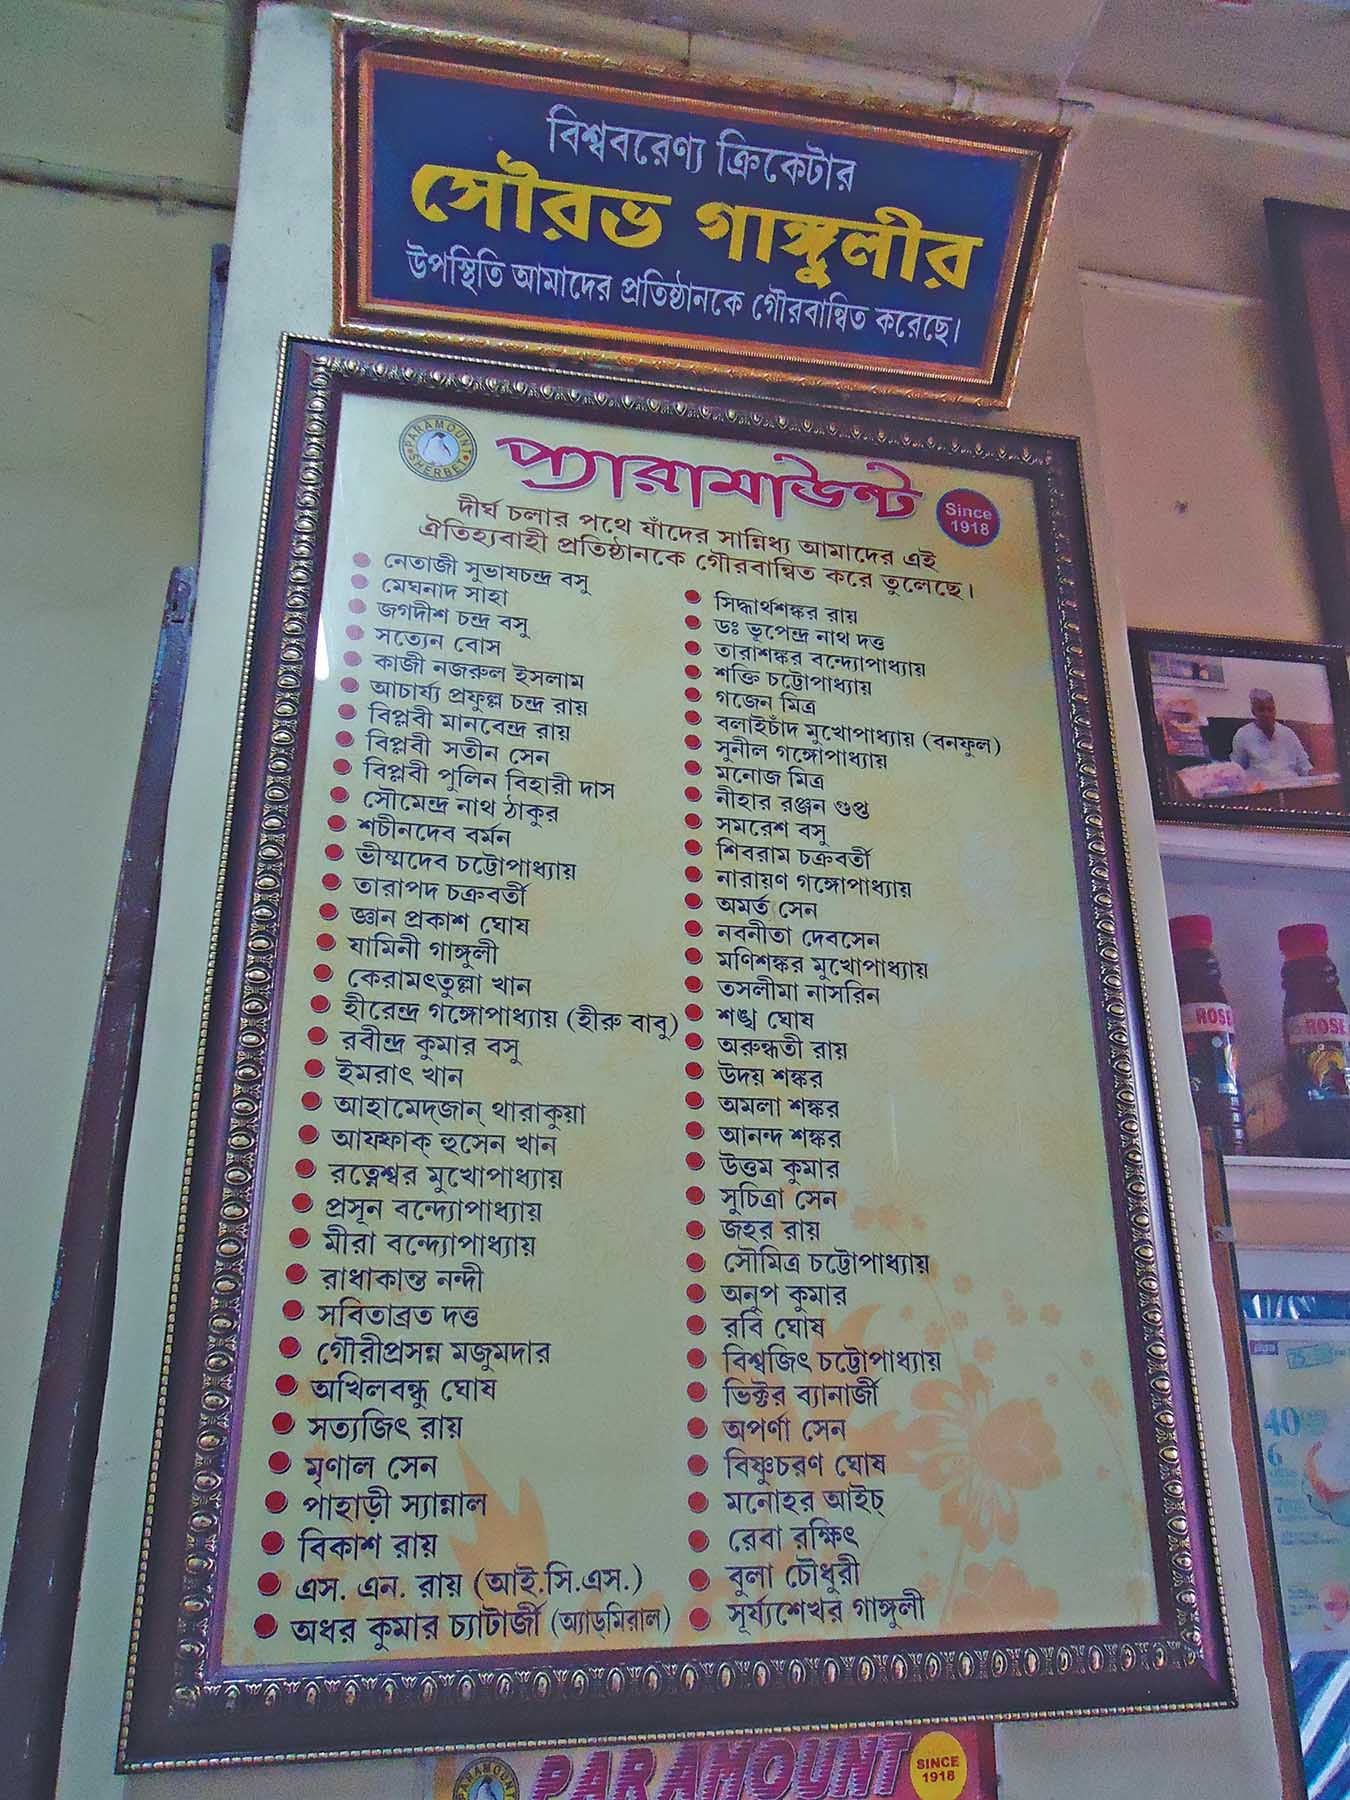 বিশ্ববরেণ্য ক্রিকেটার
সৌরভ গাঙ্গুলীর
উপস্থিতি আমাদের প্রতিষ্ঠানকে গৌরবান্বিত করেছে।
PARAMOUNT SHERBET
প্যারামাউন্ট
Since
1918
দীর্ঘ চলার পথে যাঁদের সান্নিধ্য আমাদের এই
ঐতিহ্যবাহী প্রতিষ্ঠানকে গৌরবান্বিত করে তুলেছে।
নেতাজী সুভাষচন্দ্র বসু
মেঘনাদ সাহা
জগদীশ চন্দ্র বসু
সত্যেন বোস
কাজী নজরুল ইসলাম
আচার্য্য প্রফুল্ল চন্দ্র রায়
বিপ্লবী মানবেন্দ্র রায়
বিপ্লবী সতীন সেন
বিপ্লবী পুলিন বিহারী দাস
সৌমেন্দ্র নাথ ঠাকুর
শচীনদেব বর্মন
ভীষ্মদেব চট্টোপাধ্যায়
তারাপদ চক্রবর্তী
জ্ঞান প্রকাশ ঘোষ
যামিনী গাঙ্গুলী
কেরামৎতুল্লা খান
হীরেন্দ্র গঙ্গোপাধ্যায় (হীরু বাবু)
রবীন্দ্র কুমার বসু
ইমরাৎ খান
আহামেদ্‌জান্ থারাকুয়া
আফ্ফাক্ হুসেন খান
রত্নেশ্বর মুখোপাধ্যায়
প্রসূন বন্দ্যোপাধ্যায়
মীরা বন্দ্যোপাধ্যায়
রাধাকান্ত নন্দী
সবিতাব্রত দত্ত
গৌরীপ্রসন্ন মজুমদার
অখিলবন্ধু ঘোষ
সত্যজিৎ রায়
মৃণাল সেন
পাহাড়ী স্যান্নাল
বিকাশ রায়
এস. এন. রায় (আই.সি.এস.)
অধর কুমার চ্যাটার্জী (অ্যাড্‌মিরাল)
সিদ্ধার্থশঙ্কর রায়
ডঃ ভূপেন্দ্র নাথ দত্ত
তারাশঙ্কর বন্দ্যোপাধ্যায়
শক্তি চট্টোপাধ্যায়
গজেন মিত্র
বলাইচাঁদ মুখোপাধ্যায় (বনফুল)
সুনীল গঙ্গোপাধ্যায়
মনোজ মিত্র
নীহার রঞ্জন গুপ্ত
সমরেশ বসু
শিবরাম চক্রবর্তী
নারায়ণ গঙ্গোপাধ্যায়
অমর্ত সেন
নবনীতা দেবসেন
মণিশঙ্কর মুখোপাধ্যায়
তসলীমা নাসরিন
শঙ্খ ঘোষ
অরুন্ধতী রায়
উদয় শঙ্কর
অমলা শঙ্কর
আনন্দ শঙ্কর
উত্তম কুমার
সুচিত্রা সেন
জহর রায়
সৌমিত্র চট্টোপাধ্যায়
অনুপ কুমার
রবি ঘোষ
বিশ্বজিৎ চট্টোপাধ্যায়
ভিক্টর ব্যানার্জী
অপর্ণা সেন
বিষ্ণুচরণ ঘোষ
মনোহর আইচ্
রেবা রক্ষিৎ
বুলা চৌধুরী
সূর্য্যশেখর গাঙ্গুলী
ROSE
ROSE
40
6
PARAMOUNT
SINCE
1918